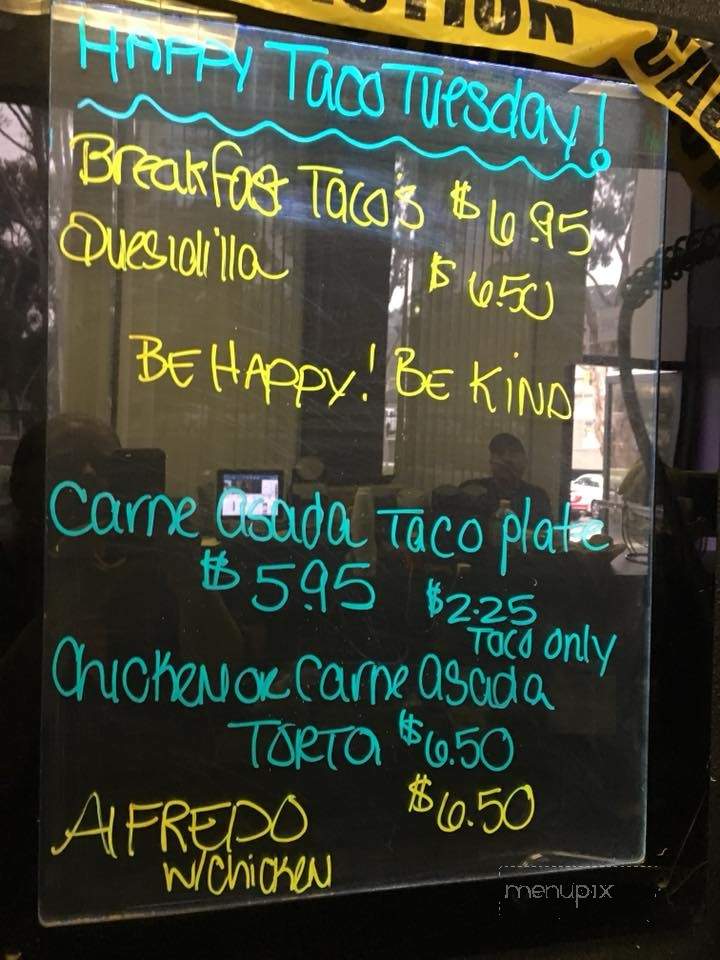 CAUTION
CAU
HAPPY Taco Tuesday!
Breakfast Tacos $6.95
Quesidilla $6.50
BE HAPPY! BE KIND
Carne asada Taco plate
$5.95 $2.25
Taco only
Chicken or Carne asada
TORTA $6.50
AlFREDO $6.50
w/Chicken
menupix